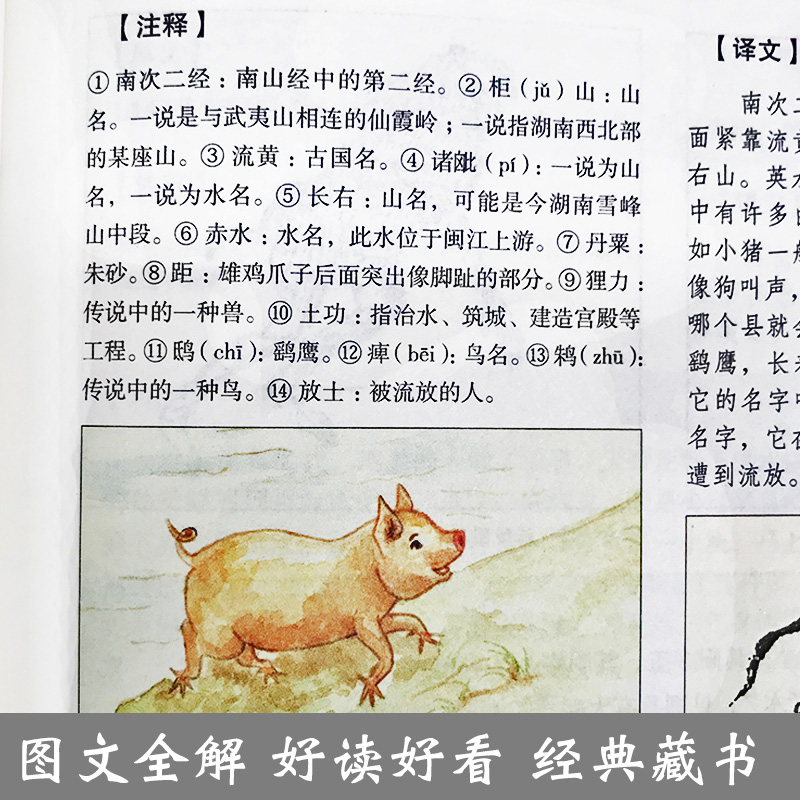 【注释】
①南次二经：南山经中的第二经。②柜（jǔ）山：山
名。一说是与武夷山相连的仙霞岭；一说指湖南西北部
的某座山。③流黄：古国名。④诸𣬉（pí）：一说为山
名，一说为水名。⑤长右：山名，可能是今湖南雪峰
山中段。⑥赤水：水名，此水位于闽江上游。⑦丹粟：
朱砂。⑧距：雄鸡爪子后面突出像脚趾的部分。⑨狸力：
传说中的一种兽。⑩土功：指治水、筑城、建造宫殿等
工程。⑪鸱（chī）：鹞鹰。⑫痺（bēi）：鸟名。⑬鴸（zhū）：
传说中的一种鸟。⑭放士：被流放的人。
【译文】
南次二
面紧靠流黄
右山。英水
中有许多
如小猪一般
像狗叫声，
哪个县就会
鹞鹰，长
它的名字叫
名字，它在
遭到流放。
图文全解 好读好看 经典藏书